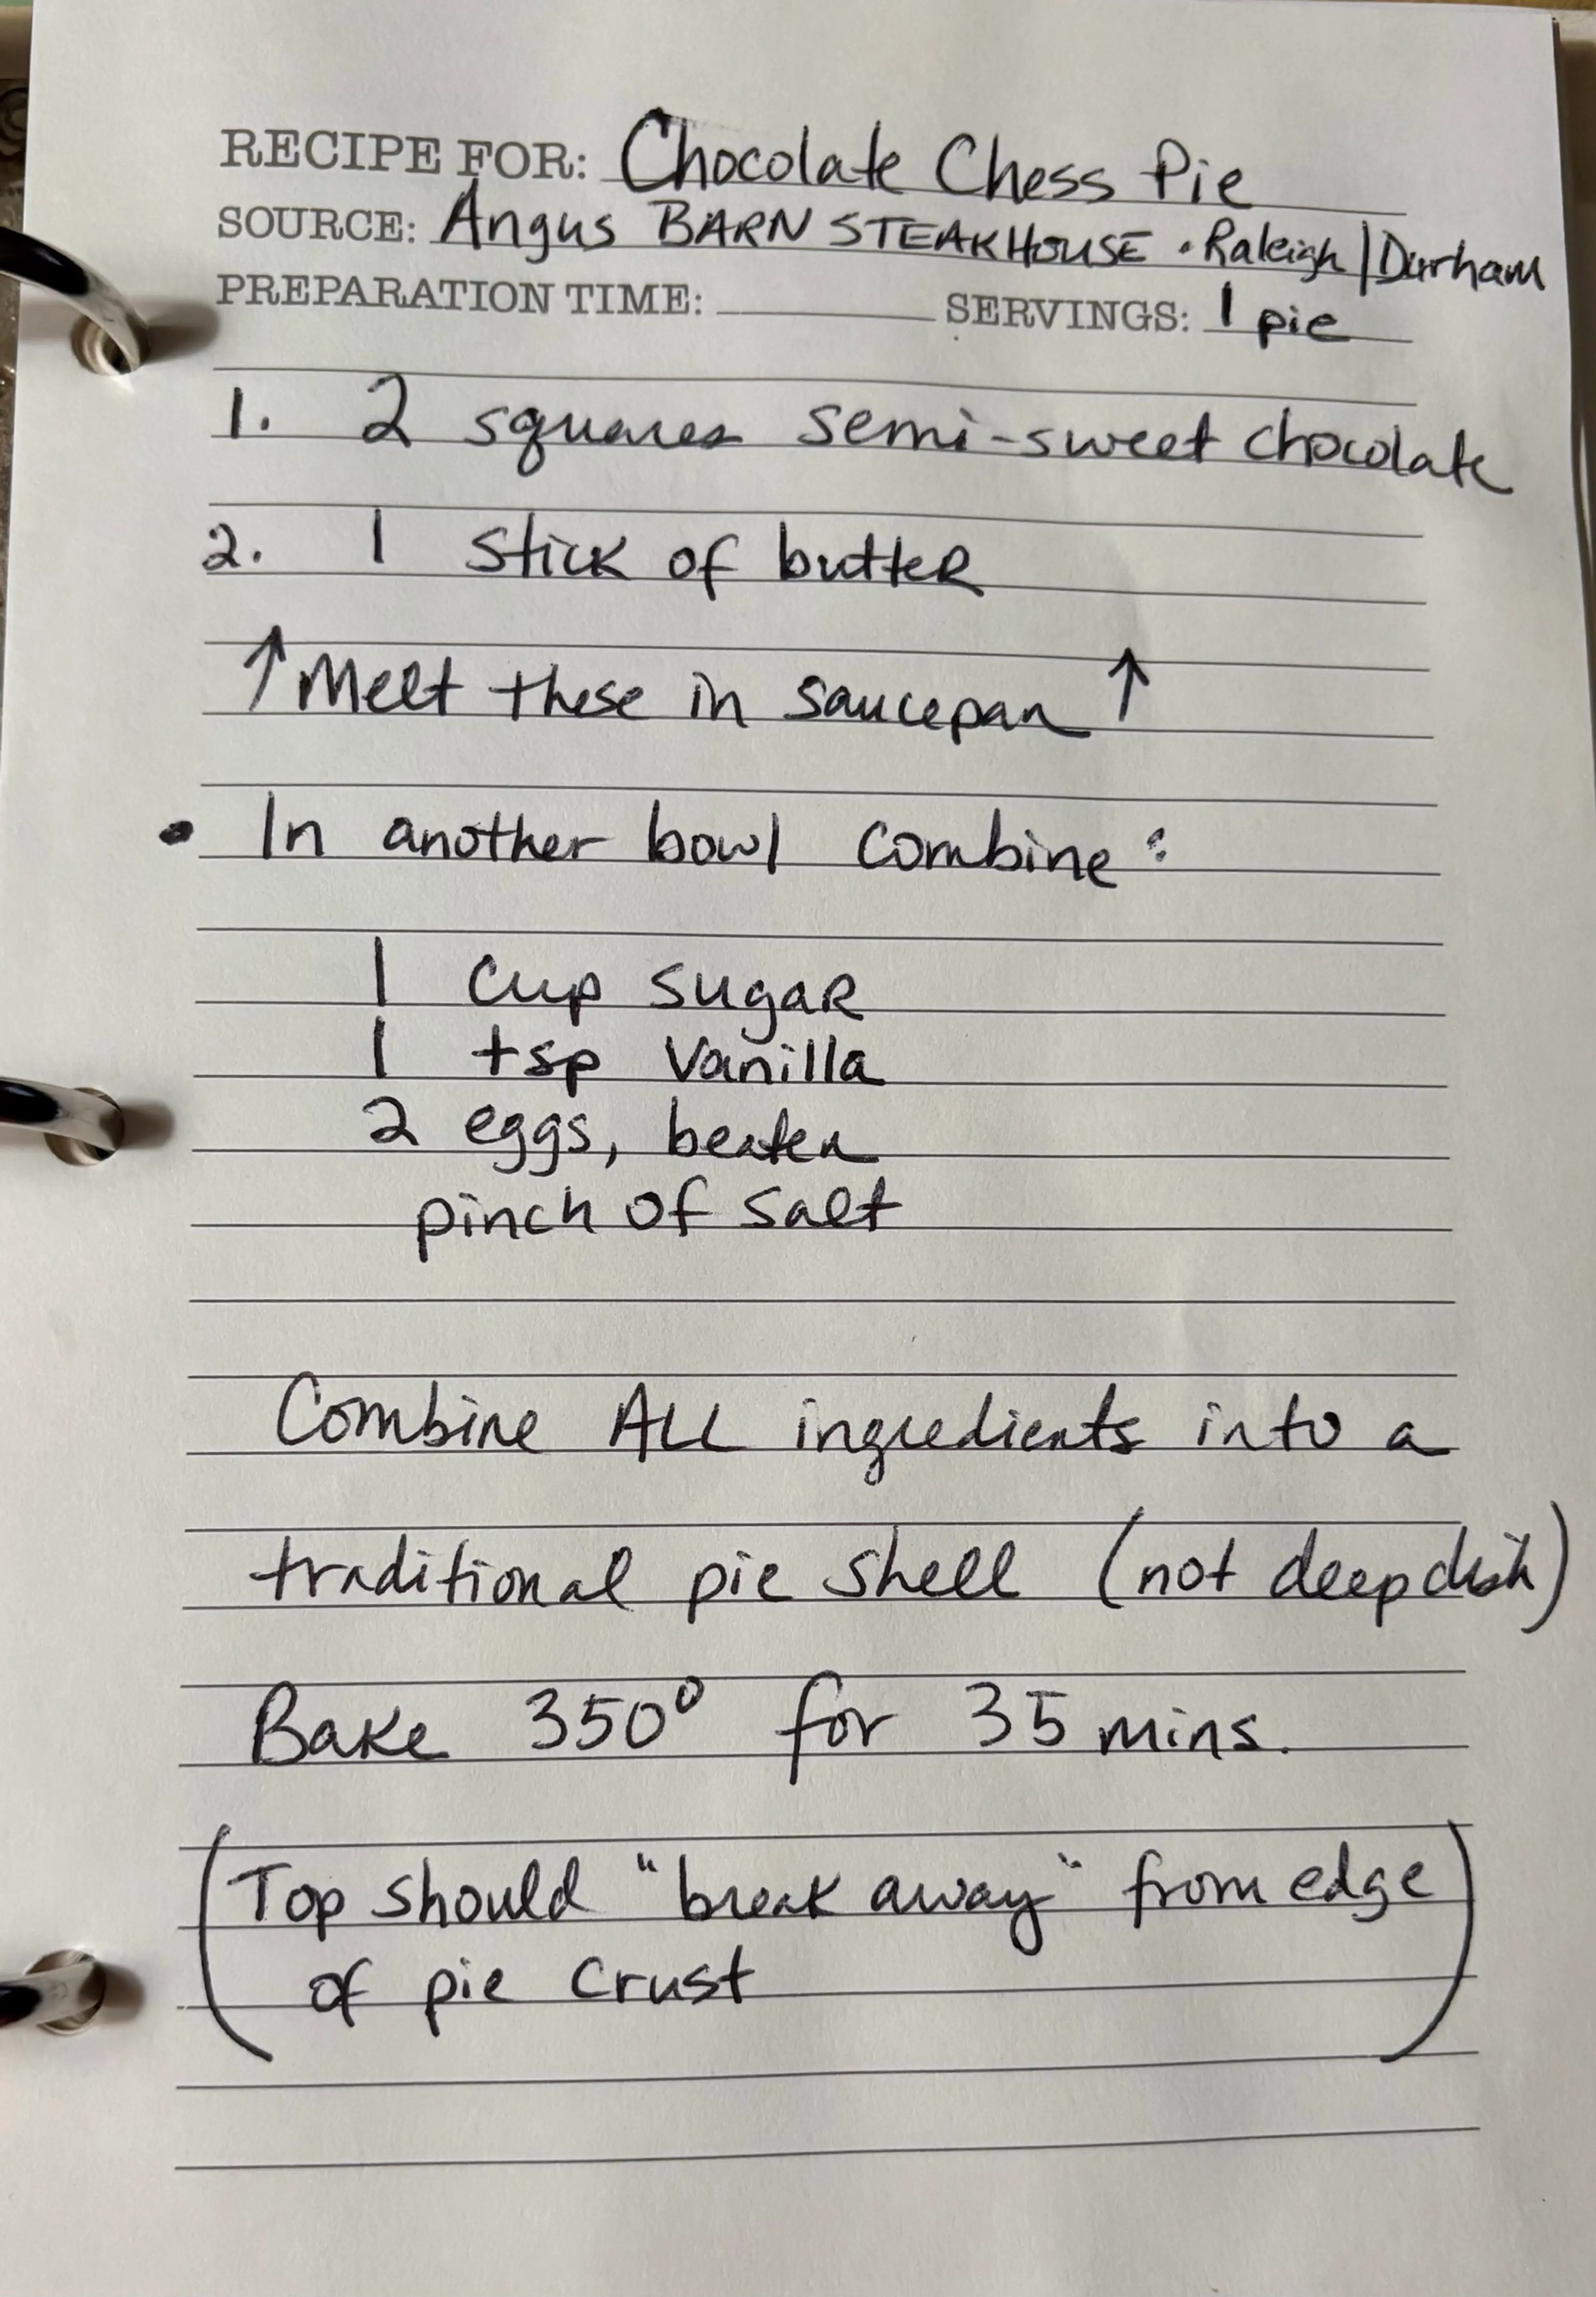 RECIPE FOR: Chocolate Chess Pie
SOURCE: Angus BARN STEAKHOUSE · Raleigh/Durham
PREPARATION TIME: SERVINGS: 1 pie
1. 2 squares semi-sweet chocolate
2. 1 stick of butter
↑ Melt these in saucepan ↑
• In another bowl combine:
1 cup sugar
1 tsp vanilla
2 eggs, beaten
pinch of salt
Combine ALL ingredients into a
traditional pie shell (not deep dish)
Bake 350° for 35 mins.
(Top should "break away" from edge
of pie crust)